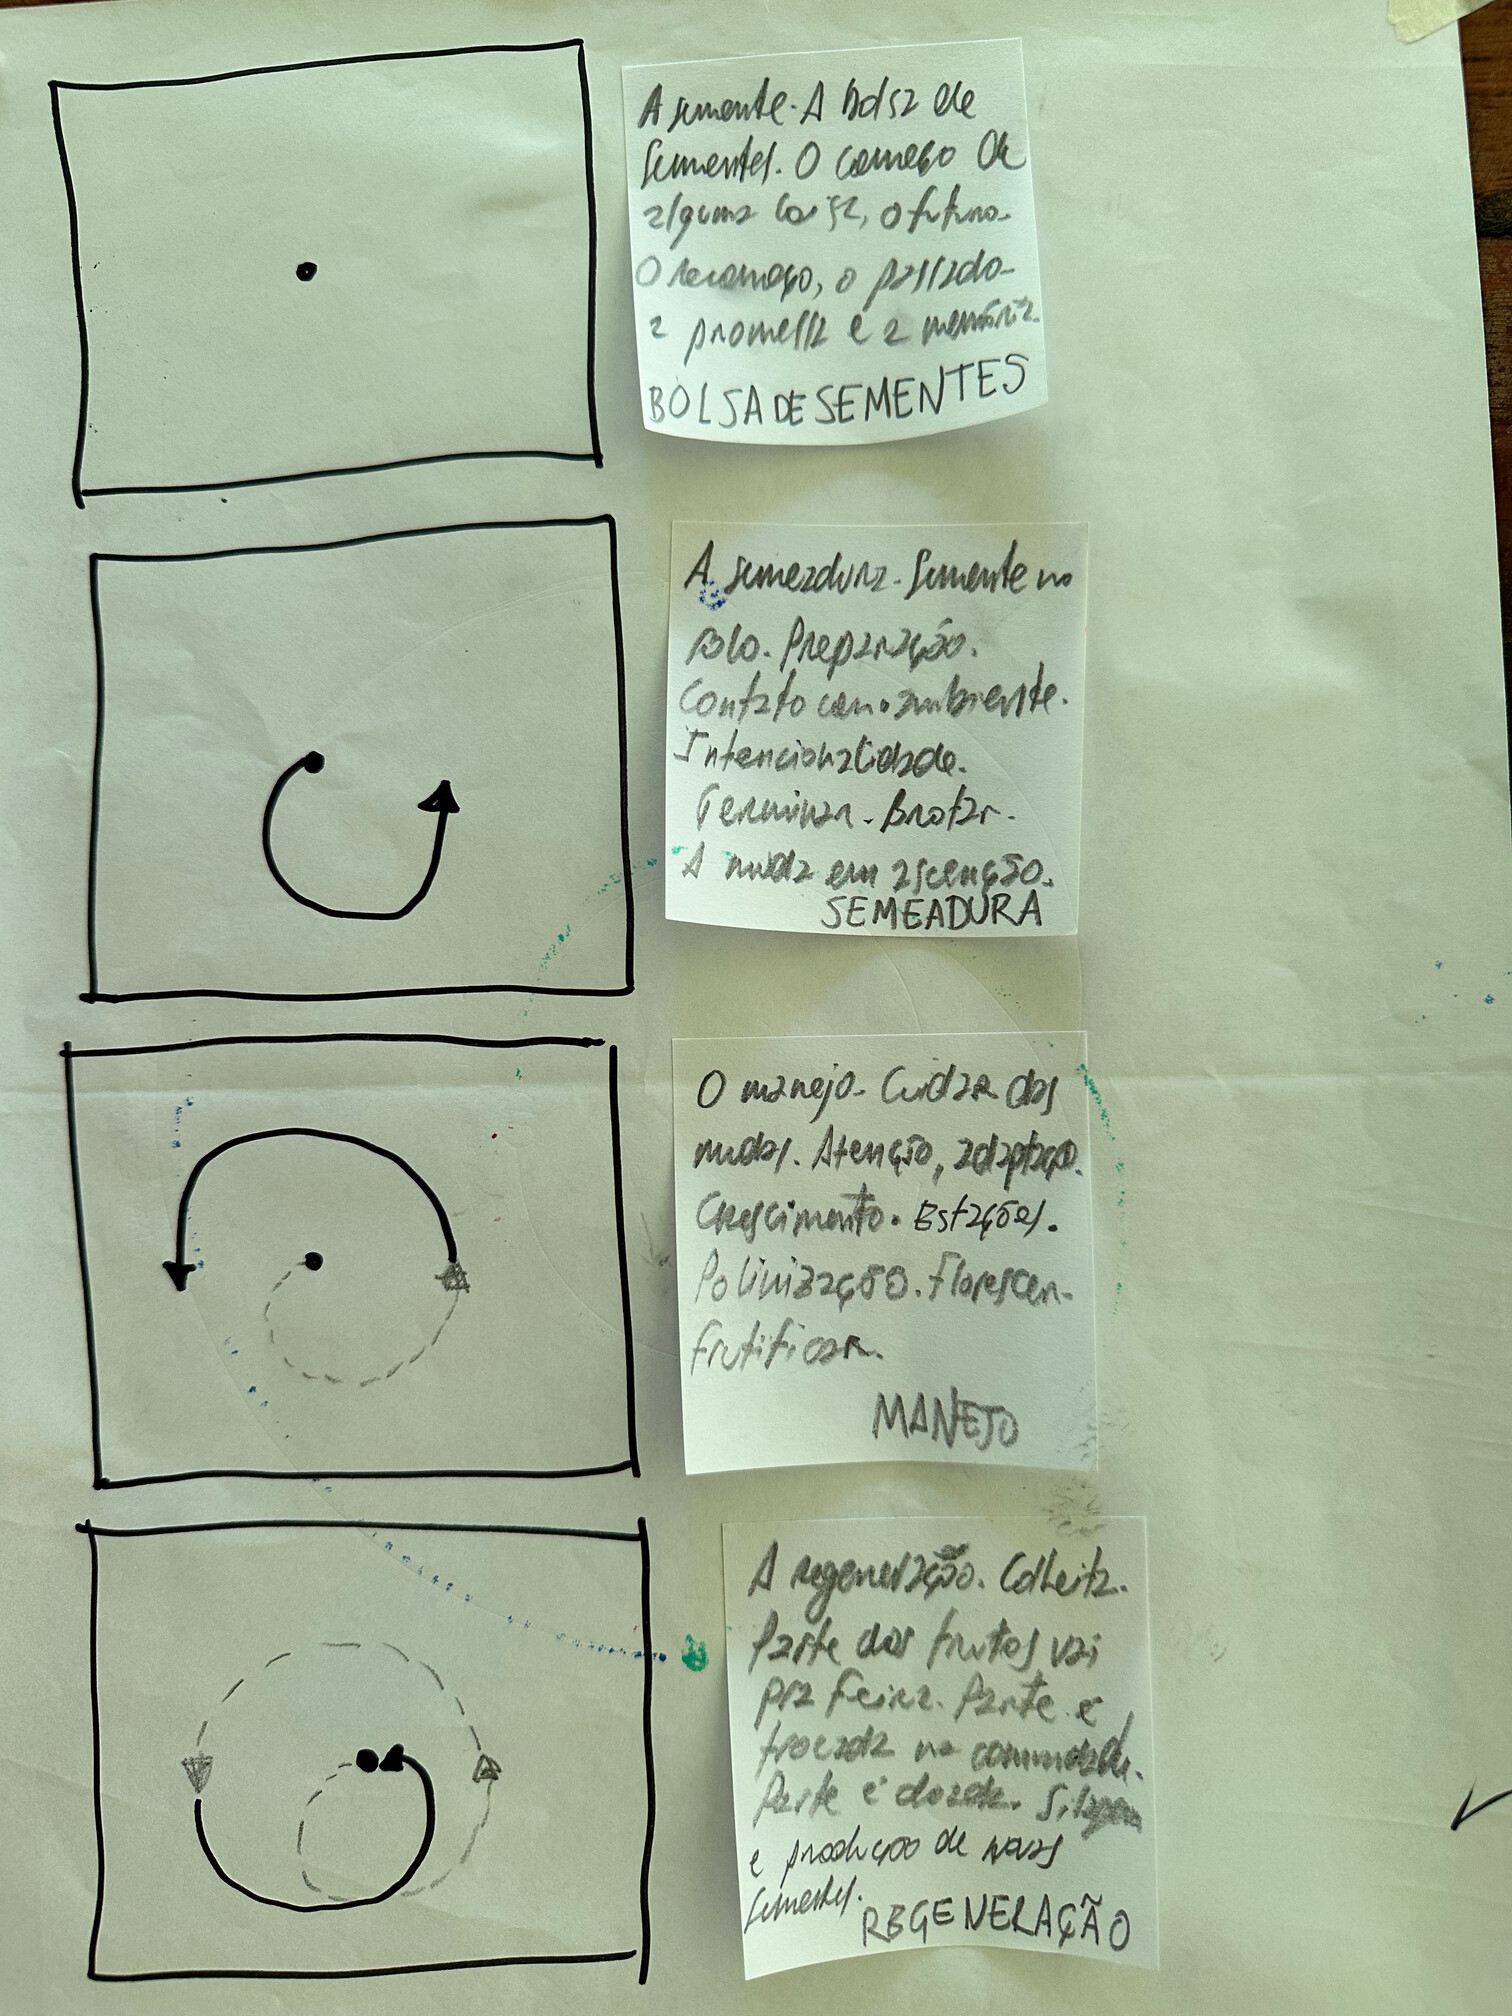 A semente. A bolsa de
sementes. O começo de
alguma coisa, o futuro.
O recomeço, o passado.
a promessa e a memória.
BOLSA DE SEMENTES
A semeadura. Semente no
solo. Preparação.
Contato com o ambiente.
Intencionalidade.
Germinar. Brotar.
A muda em ascenção.
SEMEADURA
O manejo. Cuidar das
mudas. Atenção, adaptação.
Crescimento. Estações.
Polinização. Florescer.
frutificar.
MANEJO
A regeneração. Colheita.
Parte dos frutos vai
pra feira. Parte é
trocada na comunidade.
Parte é doada. Silagem
e produção de novas
sementes.
REGENERAÇÃO